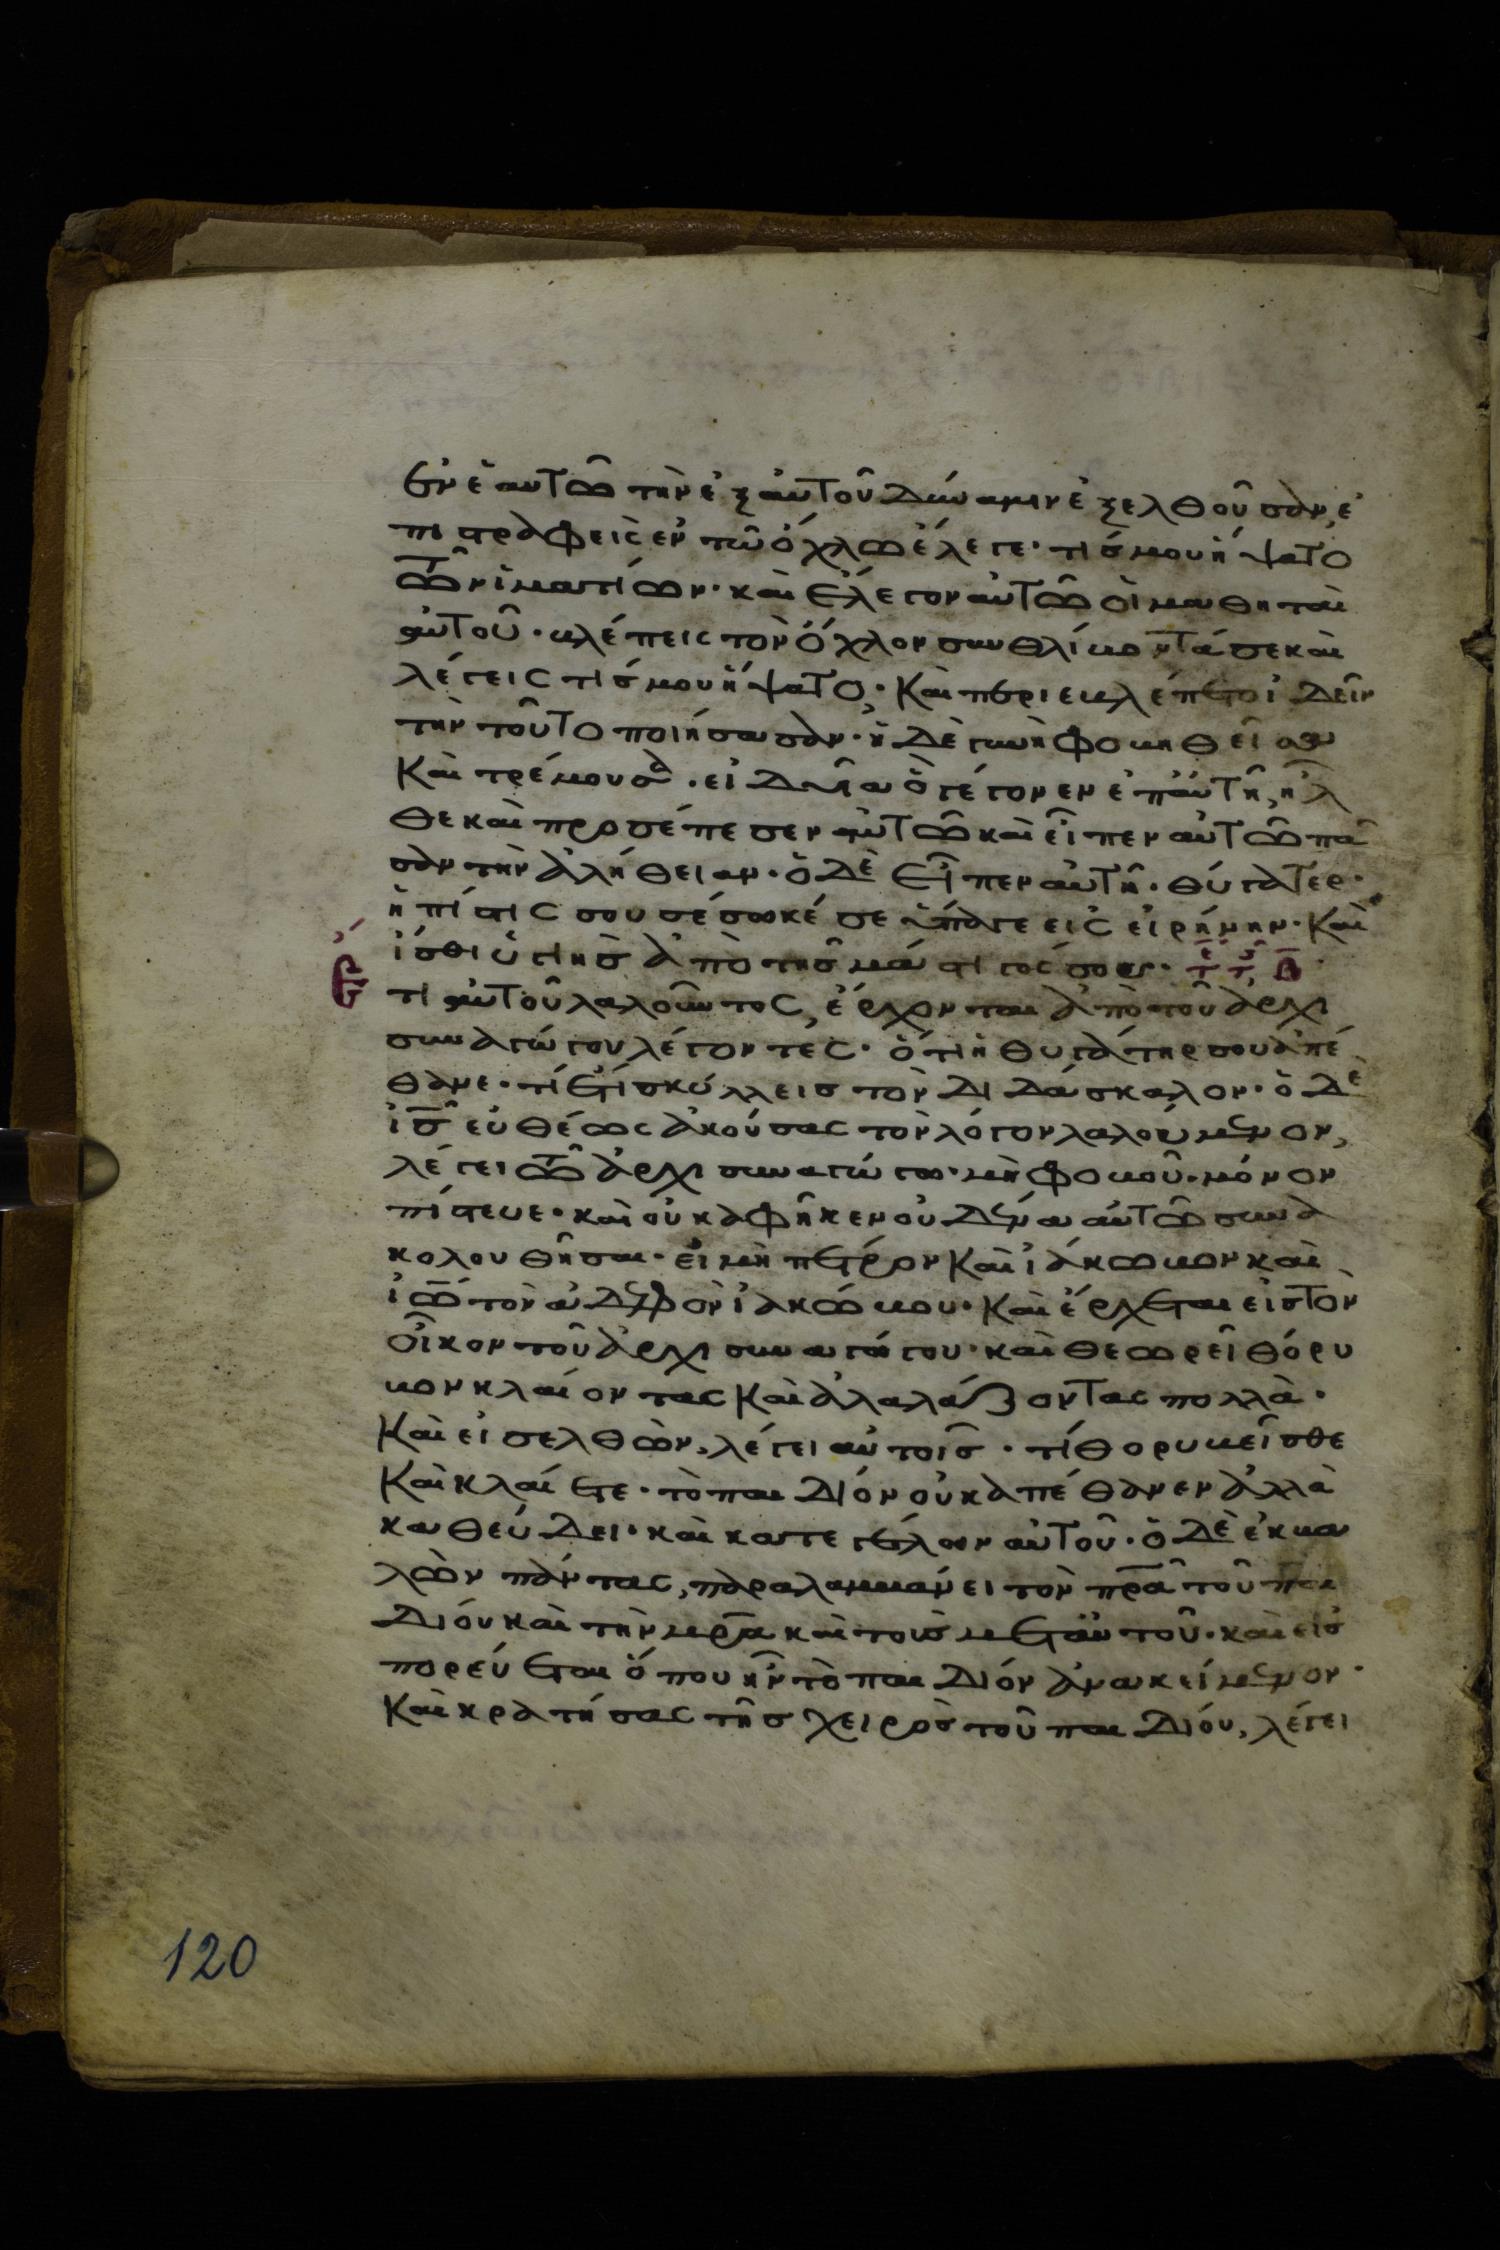 ἐν ἑαυτῶ τὴν ἐξ αὐτοῦ δύναμιν ἐξελθοῦσαν, ἐ
πιστραφεὶς ἐν τῶ ὄχλω ἔλεγε· τίς μου ἥψατο
τῶν ἱματίων· καὶ ἔλεγον αὐτῶ οἱ μαθηταὶ
αὐτοῦ· βλέπεις τὸν ὄχλον συνθλίβοντά σε καὶ
λέγεις τίς μου ἥψατο, καὶ περιεβλέπετο ἰδεῖν
τὴν τοῦτο ποιήσασαν· ἡ δὲ γυνὴ φοβηθεῖσα
καὶ τρέμουσα· εἰδυῖα ὃ γέγονεν ἐπ' αὐτῆ, ἦλ
θε καὶ προσέπεσεν αὐτῶ καὶ εἶπεν αὐτῶ πᾶ
σαν τὴν ἀλήθειαν· ὁ δὲ εἶπεν αὐτῆ· θύγατερ·
ἡ πίστις σου σέσωκέ σε ὕπαγε εἰς εἰρήνην· καὶ
ἴσθι ὑγιὴς ἀπὸ τῆς μάστιγός σου·
Ἔτι αὐτοῦ λαλοῦντος, ἔρχονται ἀπὸ τοῦ ἀρχι
συναγώγου λέγοντες· ὅτι ἡ θυγάτηρ σου ἀπέ
θανε· τί ἔτι σκύλλεις τὸν διδάσκαλον· ὁ δὲ
ἰς εὐθέως ἀκούσας τὸν λόγον λαλούμενον,
λέγει τῶ ἀρχισυναγώγω· μὴ φοβοῦ· μόνον
πίστευε· καὶ οὐκ ἀφῆκεν οὐδένα αὐτῶ συνα
κολουθῆσαι· εἰ μὴ πέτρον καὶ ἰάκωβον καὶ
ἰω τὸν ἀδελφὸν ἰακώβου· καὶ ἔρχεται εἰς τὸν
οἶκον τοῦ ἀρχισυναγώγου· καὶ θεωρεῖ θόρυ
βον κλαίοντας καὶ ἀλαλάζοντας πολλὰ·
καὶ εἰσελθὼν, λέγει αὐτοῖς· τί θορυβεῖσθε
καὶ κλαίετε· τὸ παιδίον οὐκ ἀπέθανεν ἀλλὰ
καθεύδει· καὶ κατεγέλων αὐτοῦ· ὁ δὲ ἐκβα
λὼν πάντας, παραλαμβάνει τὸν πρα τοῦ παι
δίου καὶ τὴν μρα καὶ τοὺς μετ' αὐτοῦ· καὶ εἰσ
πορεύεται ὅπου ἦν τὸ παιδίον ἀνακείμενον·
καὶ κρατήσας τῆς χειρὸς τοῦ παιδίου, λέγει
120